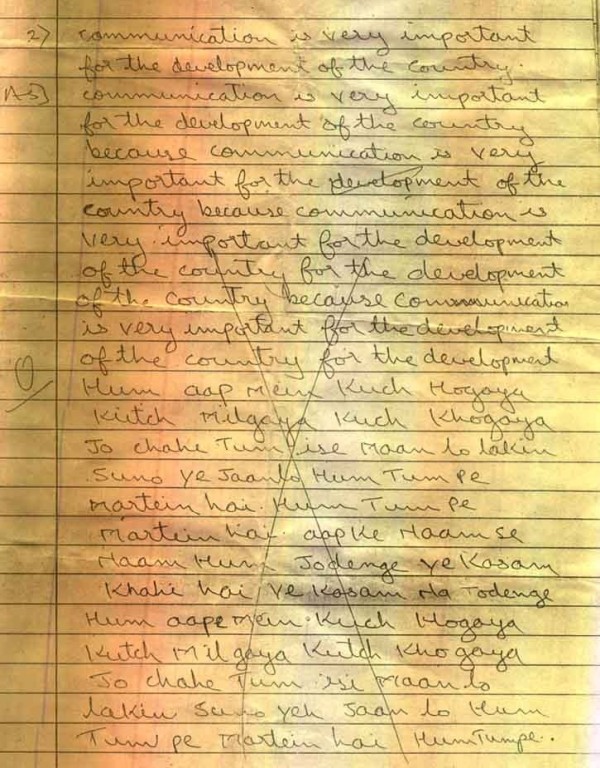 2) communication is very important
for the development of the country.
A-5) communication is very important
for the development of the country
because communication is very
important for the development of the
country because communication is
very important for the development
of the country for the development
of the country because communication
is very important for the development
of the country for the development
0 Hum aap mein Kuch Hogaya
Kutch Milgaya Kuch Khogaya
Jo chahe Tum ise Maan lo lakin
Suno ye Jaanlo Hum Tum pe
Martein hai. Hum Tum pe
Martein hai. aap ke Naam se
Naam Hum Jodenge ye Kasam
Khahi hai ye Kasam Na Todenge
Hum aape mein Kuch Hogaya
Kutch Milgaya Kutch Khogaya
Jo chahe Tum isi Maan lo
lakin Suno yeh Jaan lo Hum
Tum pe Martein hai HumTumpe.